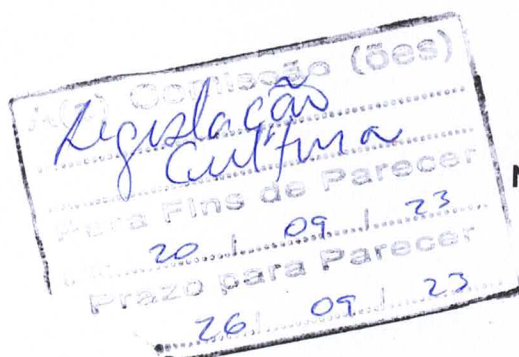 A(s) Comissão (ões)
Legislação
Cultura
Para Fins de Parecer
20 / 09 / 23
Prazo para Parecer
26 / 09 / 23